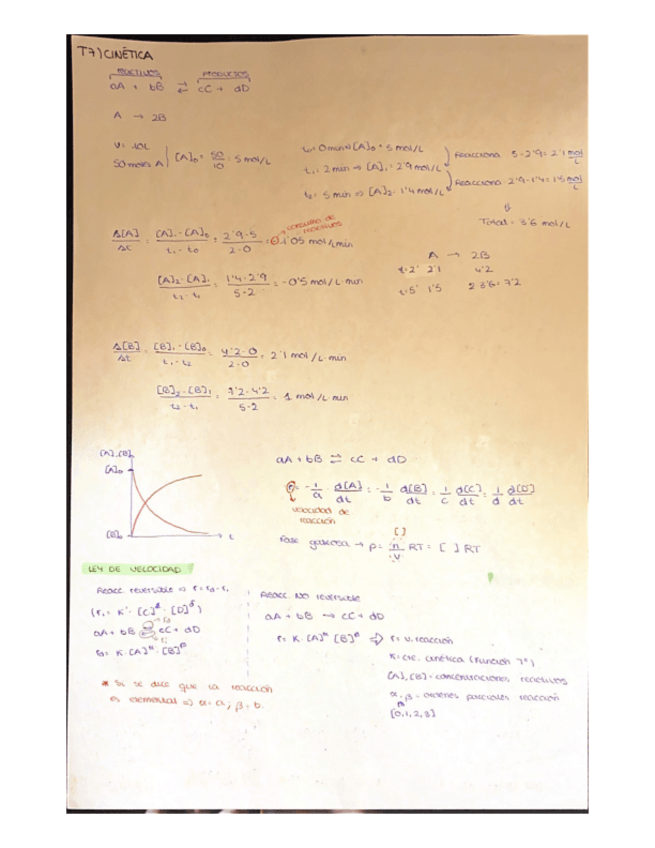 T7) CINÉTICA
REACTIVOS PRODUCTOS
aA + bB ⇄ cC + dD
A → 2B
V = 10L
50 moles A [A]₀ = 50/10 = 5 mol/L
t₀ = 0 min ⇒ [A]₀ = 5 mol/L
t₁ = 2 min ⇒ [A]₁ = 2'9 mol/L
t₂ = 5 min ⇒ [A]₂ = 1'4 mol/L
Reacciona 5 - 2'9 = 2'1 mol/L
Reacciona 2'9 - 1'4 = 1'5 mol/L
Total = 3'6 mol/L
consumo de reactivos
Δ[A]/Δt = ([A]₁ - [A]₀)/(t₁ - t₀) = (2'9 - 5)/(2 - 0) = -1'05 mol/L min
([A]₂ - [A]₁)/(t₂ - t₁) = (1'4 - 2'9)/(5 - 2) = -0'5 mol/L · min
A → 2B
t=2' 2'1 4'2
t=5' 1'5 2·3'6 = 7'2
Δ[B]/Δt = ([B]₁ - [B]₀)/(t₁ - t₂) = (4'2 - 0)/(2 - 0) = 2'1 mol/L · min
([B]₂ - [B]₁)/(t₂ - t₁) = (7'2 - 4'2)/(5 - 2) = 1 mol/L · min
[A], [B]
[A]₀
[B]₀
t
aA + bB ⇄ cC + dD
r = -1/a · d[A]/dt = -1/b d[B]/dt = 1/c d[C]/dt = 1/d d[D]/dt
velocidad de
reacción
[ ]
Fase gaseosa → p = n/V RT = [ ] RT
LEY DE VELOCIDAD
Reacc. reversible ⇒ r = rd - ri
(ri = K' · [C]^γ · [D]^δ)
aA + bB ⇄ cC + dD
rd = K · [A]^α · [B]^β
* Si se dice que la reacción
es elemental ⇒ α = a ; β = b.
Reacc. NO reversible
aA + bB → cC + dD
r = K · [A]^α [B]^β ⇒ r = v. reacción
K = cte. cinética (función Tª)
[A], [B] = concentraciones reactivos
α, β = órdenes parciales reacción
[0, 1, 2, 3]